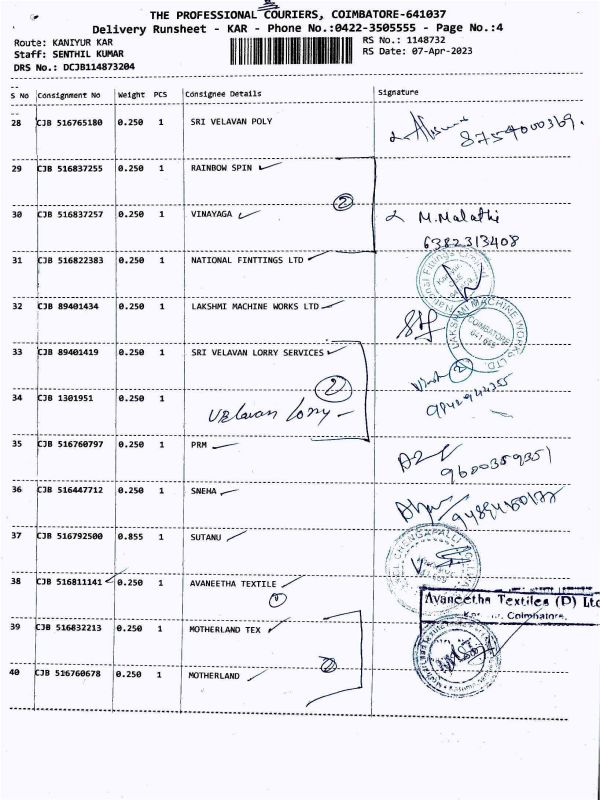 THE PROFESSIONAL COURIERS, COIMBATORE-641037
Delivery Runsheet - KAR - Phone No.:0422-3505555 - Page No.:4
Route: KANIYUR KAR
RS No.: 1148732
Staff: SENTHIL KUMAR
RS Date: 07-Apr-2023
DRS No.: DCJB114873204
S No Consignment No Weight PCS Consignee Details Signature
28 CJB 516765180 0.250 1 SRI VELAVAN POLY
8754000369.
29 CJB 516837255 0.250 1 RAINBOW SPIN
2
30 CJB 516837257 0.250 1 VINAYAGA
M.Malathi
6382313408
31 CJB 516822383 0.250 1 NATIONAL FINTTINGS LTD
32 CJB 89401434 0.250 1 LAKSHMI MACHINE WORKS LTD
LAKSHMI MACHINE WORKS LTD.
COIMBATORE
641 065
33 CJB 89401419 0.250 1 SRI VELAVAN LORRY SERVICES
2
2
34 CJB 1301951 0.250 1
Velavan lorry
35 CJB 516760797 0.250 1 PRM
9600359351
36 CJB 516447712 0.250 1 SNEHA
37 CJB 516792500 0.855 1 SUTANU
38 CJB 516811141 0.250 1 AVANEETHA TEXTILE
Avaneetha Textiles (P) Ltd
Coimbatore.
39 CJB 516832213 0.250 1 MOTHERLAND TEX
40 CJB 516760678 0.250 1 MOTHERLAND